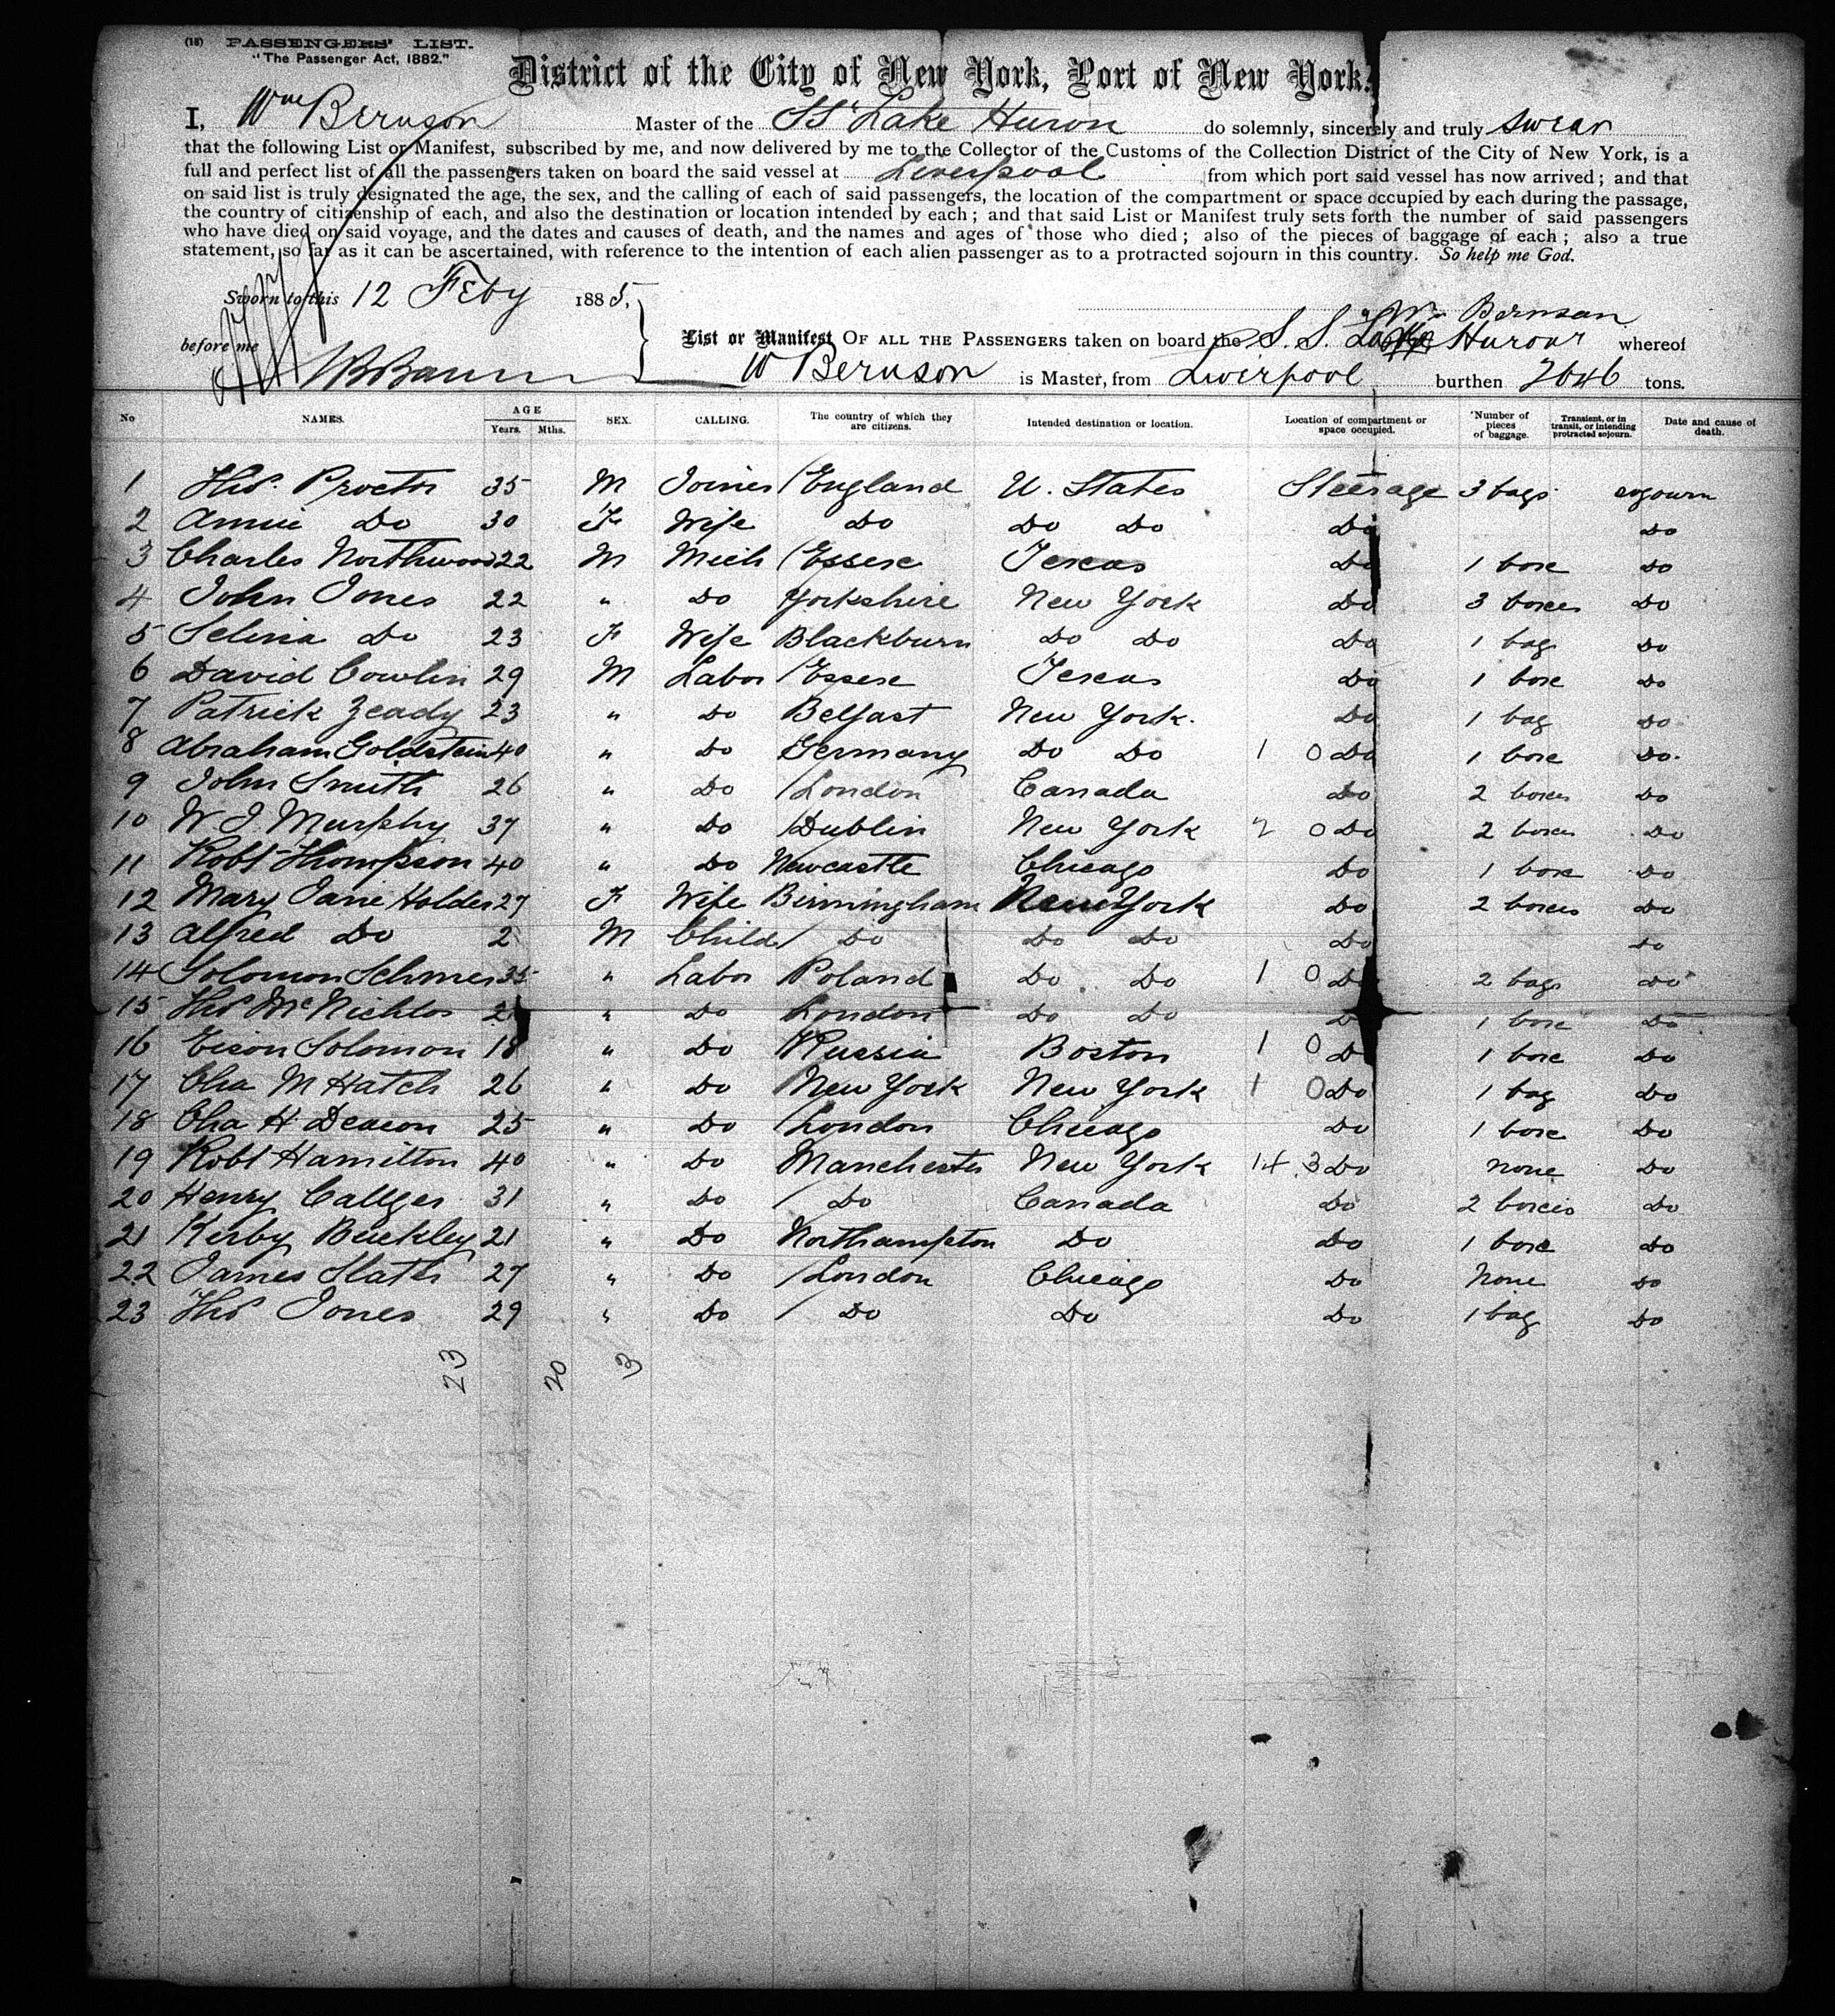 (18) PASSENGERS' LIST.
"The Passenger Act, 1882."
District of the City of New York, Port of New York.
I, Wm Bernson Master of the SS Lake Huron do solemnly, sincerely and truly swear
that the following List or Manifest, subscribed by me, and now delivered by me to the Collector of the Customs of the Collection District of the City of New York, is a
full and perfect list of all the passengers taken on board the said vessel at Liverpool from which port said vessel has now arrived; and that
on said list is truly designated the age, the sex, and the calling of each of said passengers, the location of the compartment or space occupied by each during the passage,
the country of citizenship of each, and also the destination or location intended by each; and that said List or Manifest truly sets forth the number of said passengers
who have died on said voyage, and the dates and causes of death, and the names and ages of those who died; also of the pieces of baggage of each; also a true
statement, so far as it can be ascertained, with reference to the intention of each alien passenger as to a protracted sojourn in this country. So help me God.
Sworn to this 12 Feby 1885,
Wm Bernson
before me
List or Manifest OF ALL THE PASSENGERS taken on board the S. S. Lake Huron whereof
W Bernson is Master, from Liverpool burthen 2646 tons.
No NAMES. AGE Years. Mths. SEX. CALLING. The country of which they are citizens. Intended destination or location. Location of compartment or space occupied. Number of pieces of baggage. Transient, or in transit, or intending protracted sojourn. Date and cause of death.
1 Thos. Proctor 35 M Joiner England U. States Steerage 3 bags sojourn
2 Annie Do 30 F Wife Do Do Do Do Do
3 Charles Northwood 22 M Mech Essex Texas Do 1 box Do
4 John Jones 22 " Do Yorkshire New York Do 3 boxes Do
5 Selina Do 23 F Wife Blackburn Do Do Do 1 bag Do
6 David Cowlin 29 M Labor Essex Texas Do 1 box Do
7 Patrick Zeady 23 " Do Belfast New York. Do 1 bag Do
8 Abraham Goldstein 40 " Do Germany Do Do 1 0 Do 1 box Do.
9 John Smith 26 " Do London Canada Do 2 boxes Do
10 W J Murphy 37 " Do Dublin New York 2 0 Do 2 boxes Do
11 Robt Thompson 40 " Do Newcastle Chicago Do 1 box Do
12 Mary Jane Holder 27 F Wife Birmingham New York Do 2 boxes Do
13 Alfred Do 2 M Child Do Do Do Do Do
14 Solomon Schmer 35 " Labor Poland Do Do 1 0 Do 2 bags Do
15 Thos McNichlos " Do London Do Do Do 1 box Do
16 Solomon 18 " Do Russia Boston 1 0 Do 1 box Do
17 Cha M Hatch 26 " Do New York New York 1 0 Do 1 bag Do
18 Cha H Deacon 25 " Do London Chicago Do 1 box Do
19 Robt Hamilton 40 " Do Manchester New York 14 3 Do None Do
20 Henry Callger 31 " Do Do Canada Do 2 boxes Do
21 Kerby Buckley 21 " Do Northampton Do Do 1 box Do
22 James Slater 27 " Do London Chicago Do None Do
23 Thos Jones 29 " Do Do Do Do 1 bag Do
23 20 3